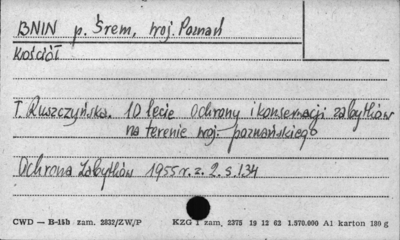 BNIN p. Śrem, woj. Poznań
Kościół
T. Ruszczyńska. 10 lecie Ochrony i konserwacji zabytków
na terenie woj. poznańskiego
Ochrona Zabytków 1955 r. z. 2. s. 134
CWD — B-15b zam. 2832/ZW/P KZG 1 zam. 2375 19 12 62 1.570.000 A1 karton 180 g